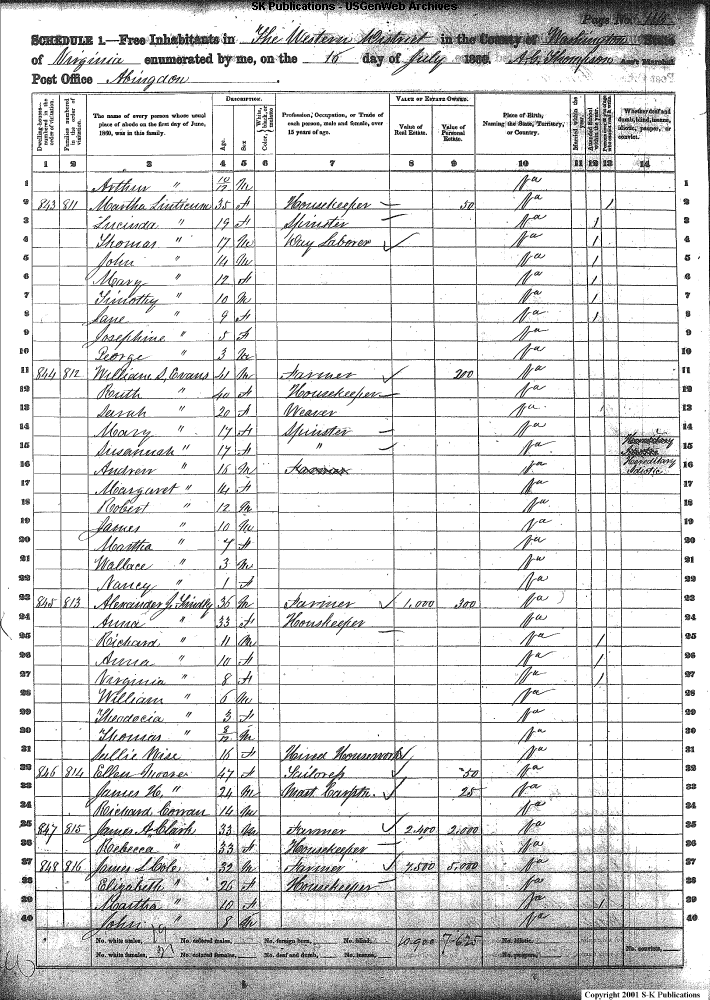 SK Publications - USGenWeb Archives
Page No.
SCHEDULE 1.—Free Inhabitants in The Western District in the County of Washington State
of Virginia enumerated by me, on the 16 day of July 1860. A.C. Thompson Ass't Marshal
Post Office Abingdon.
Dwelling-houses—numbered in the order of visitation. Families numbered in the order of visitation. The name of every person whose usual place of abode on the first day of June, 1860, was in this family. DESCRIPTION. Age. Sex. Color. Profession, Occupation, or Trade of each person, male and female, over 15 years of age. VALUE OF ESTATE OWNED. Value of Real Estate. Value of Personal Estate. Place of Birth, Naming the State, Territory, or Country. Married within the year. Attended School within the year. Whether deaf and dumb, blind, insane, idiotic, pauper, or convict.
1 2 3 4 5 6 7 8 9 10 11 12 13 14
1 Arthur " 10/12 M Va 1
2 843 811 Martha Linticum 35 F Housekeeper 50 Va / 2
3 Lucinda " 19 F Spinster Va / 3
4 Thomas " 17 M Day Laborer Va / 4
5 John " 14 M Va / 5
6 Mary " 12 F Va / 6
7 Timothy " 10 M Va / 7
8 Jane " 9 F Va / 8
9 Josephine " 5 F Va 9
10 George " 3 M Va 10
11 844 812 William S. Evans 41 M Farmer 200 Va 11
12 Ruth " 40 F Housekeeper Va 12
13 Sarah " 20 F Weaver Va 13
14 Mary " 17 F Spinster Va 14
15 Susannah " 17 F " Va 15
16 Andrew " 16 M Farmer Va Hereditary Idiotic 16
17 Margaret " 14 F Va 17
18 Robert " 12 M Va 18
19 James " 10 M Va 19
20 Martha " 7 F Va 20
21 Wallace " 3 M Va 21
22 Nancy " 1 F Va 22
23 845 813 Alexander J. Findly 36 M Farmer 1,000 300 Va 23
24 Anna " 33 F Houskeeper Va 24
25 Richard " 11 M Va / 25
26 Anna " 10 F Va / 26
27 Virginia " 8 F Va / 27
28 William " 6 M Va 28
29 Theodocia " 3 F Va 29
30 Thomas " 8/12 M Va 30
31 Wise 16 F Hired Housework Va 31
32 846 814 Ellen Moore 47 F Tailoress 50 Va 32
33 James H. " 24 M Mast Carpth. 25 Va 33
34 Richard 14 M Va 34
35 847 815 James A. Clark 33 M Farmer 2,400 2,000 Va 35
36 Rebecca " 33 F Housekeeper Va 36
37 848 816 James L. Cole 32 M Farmer 7,500 5,000 Va 37
38 Elizabeth " 26 F Housekeeper Va 38
39 Martha " 10 F Va / 39
40 John " 8 M Va 40
No. white males, 19 No. colored males, No. foreign born, No. blind, 10,900 7,625 No. idiotic,
No. white females, 21 No. colored females, No. deaf and dumb, No. insane, No. paupers, No. convicts,
Copyright 2001 S-K Publications